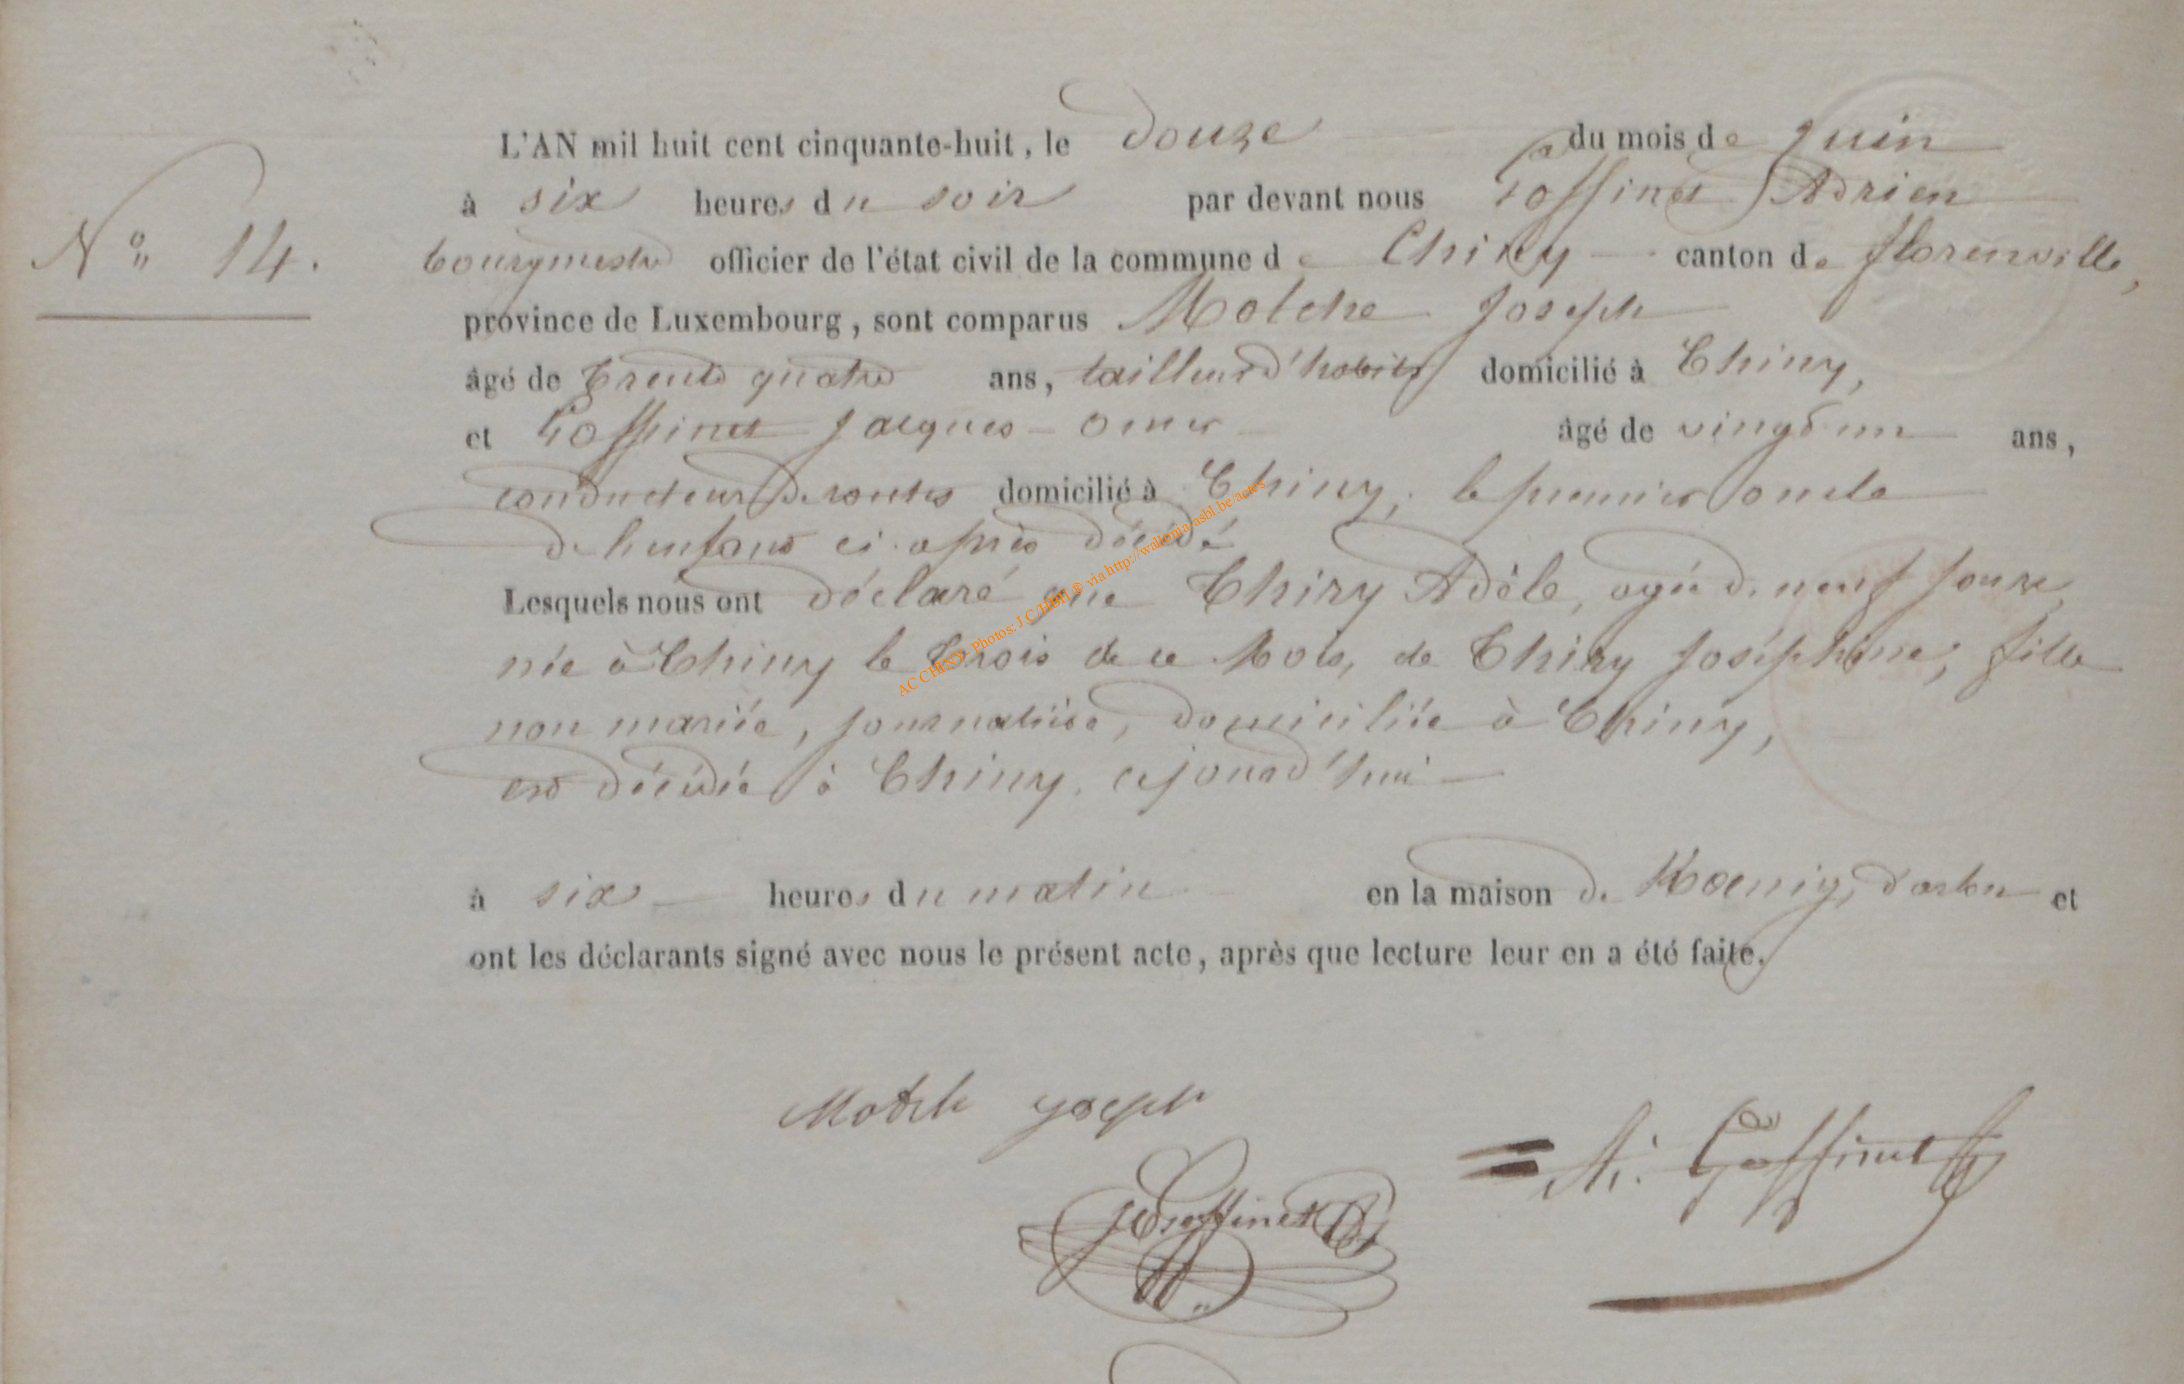 L'AN mil huit cent cinquante-huit, le douze du mois de Juin
à six heures du soir par devant nous Goffinet Adrien
N° 14. bourgmestre officier de l'état civil de la commune de Chiny canton de florenville,
province de Luxembourg, sont comparus Motche Joseph
âgé de trente quatre ans, tailleur d'habits domicilié à Chiny,
et Goffinet Jacques-Omer âgé de vingt un ans,
conducteur de routes domicilié à Chiny, le premier oncle
de l'enfant ci-après décédé
Lesquels nous ont déclaré que Thiry Adèle, agée de neuf jours,
née à Chiny le trois de ce Mois, de Thiry Joséphine, fille
non mariée, journalière, domiciliée à Chiny,
est décédée à Chiny, cejourd'hui
à six heures du matin en la maison de Koenig, d'arlon et
ont les déclarants signé avec nous le présent acte, après que lecture leur en a été faite.
Motche joseph
A. Goffinet
JGoffinet
AC CHINY Photos: J C HBH ® via http://wallonia-asbl.be/actes